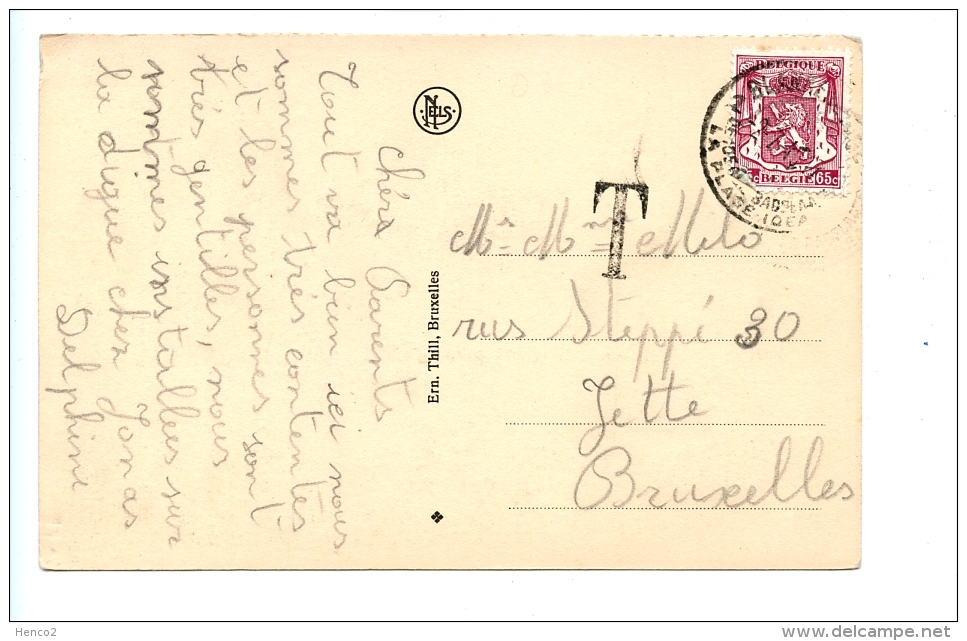 Chérs Parents
Tout va bien ici nous
sommes très contentes
et les personnes sont
très gentilles, nous
sommes installées sur
la digue chez Jonas
Delphine
NELS
Ern. Thill, Bruxelles
T
BELGIQUE
BELGIE 65c
LA PLAGE IDEA
Mr Mme Milo
rue Steppé 30
Jette
Bruxelles
Henco2
www.delcampe.net